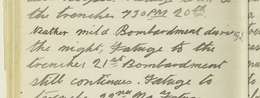 the trenches 7.30 PM 20th.
Weather mild Bombardment during
the night, Fatuge to the
trenches 21st Bombardment
still continues. Fatuge to